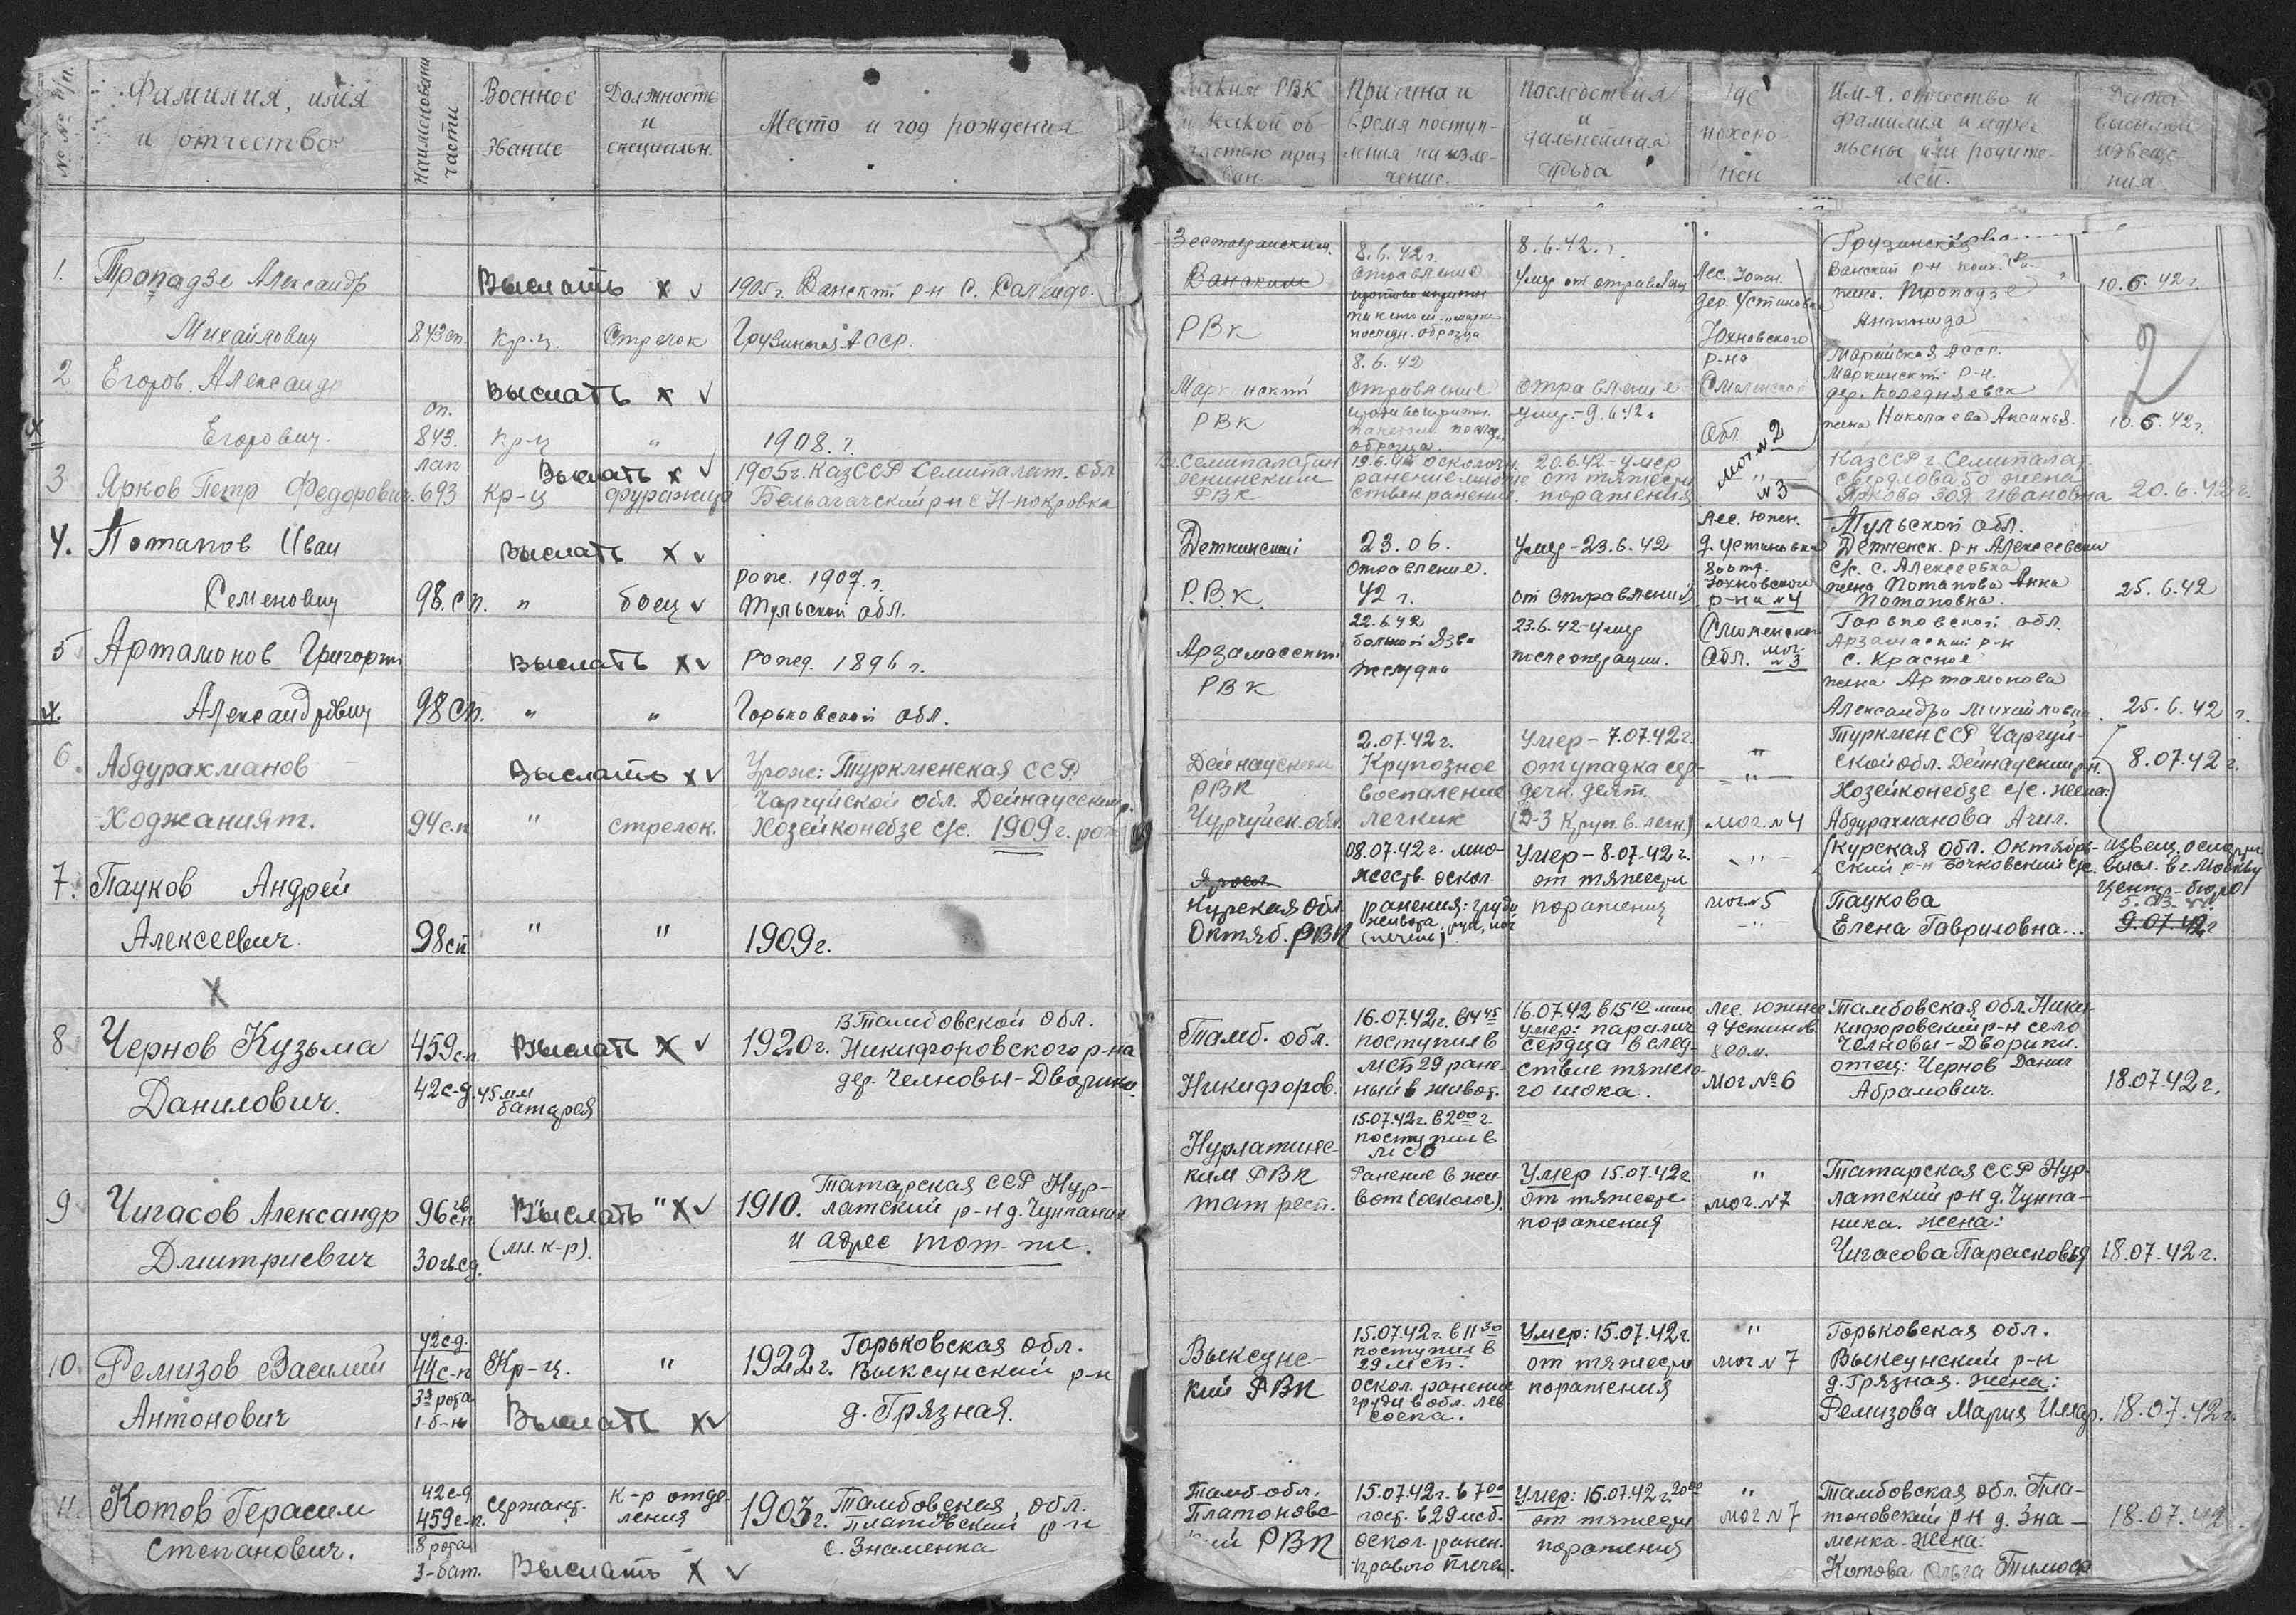 №№ п/п.
Фамилия, имя
и отчество
Наименован.
части
Военное
звание
Должность
и
специальн.
Место и год рождения
Каким РВК
и какой об-
ластью приз
ван
Причина и
время поступ-
ления на изле-
чение.
Последствия
и
дальнейшая
судьба
Где
похоро-
нен
Имя, отчество и
фамилия и адрес
жены или родите-
лей.
Дата
высылки
извеще-
ния.
1. Тропадзе Александр
Михайлович
843 сп.
Выслать х v
Кр-ц. Стрелок
1905 г. Ванский р-н с.
Грузинская ССР.
Ванским
РВК
8.6.42 г.
отравление
последн. образца
8.6.42. г.
умер от
Лес. Южн.
дер. Устиновка
Юхновского
р-на
Смоленской
Обл.
мог №2
Ванский р-н
жена. Тропадзе
10.6.42 г.
2
2 Егоров. Александр
Егорович.
сп.
843.
Выслать х v
Кр-ц "
1908. г.
РВК
8.6.42
отравление
образца
отравление
умер - 9.6.42 г
Марийская АССР.
р-н.
дер.
жена Николаева Аксинья.
10.6.42 г.
3 Ярков Петр Федорович.
лап
693
Выслать х v
Кр-ц фуражир
1905 г. КазССР Семипалат. обл
Бельагачский р-н с Н-покровка
Семипалатин
ленинским
РВК
19.6.42 осколочн.
ранение множе
ствен. ранение.
20.6.42 - умер
от тяжести
поражения
"
№3
КазССР г. Семипалат.
Свердлова 50 жена
Яркова Зоя Ивановна
20.6.42 г.
4. Потапов Иван
Семенович
98. сп.
Выслать х v
" боец v
рож. 1907. г.
Тульской обл.
Р.В.К.
23.06.
отравление.
42 г.
умер - 23.6.42
от отравления.
Лес. южн.
д. Устиновка
Юхновского
р-на №4
Тульской обл.
р-н Алексеевский
с/с. с. Алексеевка
жена Потапова Анна
Потаповна.
25.6.42
5 Артамонов Григорий
Александрович
98 сп.
Выслать х v
" "
рожд. 1896 г.
Горьковской обл.
Арзамасский
РВК
22.6.42
желудка
23.6.42 - умер
после операции.
Смоленской
Обл. мог.
№3
Горьковской обл.
Арзамаский р-н
с. Красное
жена Артамонова
Александра Михайловна.
25.6.42 г.
6. Абдурахманов
Ходжаният.
94 с.п
Выслать х v
" стрелок.
Урож: Туркменская ССР.
Чарчуйской обл. Дейнауский р.
Хозейконебзе с/с. 1909 г. рож
Дейнауским
РВК
Чурчуйск. обл.
2.07.42 г.
Крупозное
воспаление
легких
Умер - 7.07.42 г.
от упадка сер-
дечн. деят.
(Д-з Круп. в. легк.)
"
- " -
мог. №4
Туркмен ССР Чарчуй-
ской обл. Дейнауский р-н.
Хозейконебзе с/с. жена:
Абдурахманова Ачил.
8.07.42 г.
7. Пауков Андрей
Алексеевич.
98 сп
" "
1909 г.
Курская обл.
Октяб. РВК
08.07.42 г. мно-
жеств. оскол.
ранения: груди
живота,
(печень).
Умер - 8.07.42 г.
от тяжести
поражения
- " -
мог №5
Курская обл. Октябрь-
ский р-н Бочковский с/с.
Паукова
Елена Гавриловна...
извещ.
высл. в г. Москву
центр. бюро
9.07.42 г
Х
8 Чернов Кузьма
Данилович.
459 с.п.
42 с-д.
45 мм
батарея
Выслать х v
1920 г. В Тамбовской обл.
Никифоровского р-на
дер. Челновы-Дворики.
Тамб. обл.
Никифоров.
16.07.42 г. в 14 45
поступил в
МСБ 29 ране-
ный в живот.
16.07.42 в 15 10 мин
умер: паралич
сердца вслед-
ствие тяжело-
го шока.
лес. южнее
д Устинов.
800 м.
Мог №6
Тамбовская обл. Ники-
кифоровский р-н село
Челновы-Дворики.
отец: Чернов Данил
Абрамович.
18.07.42 г.
9 Чигасов Александр
Дмитриевич
96 гв сп
30 гв сд.
Выслать " х v
(мл. к-р).
1910. Татарская ССР Нур-
латский р-н д. Чулпаних
и адрес тот-же.
Нурлатинс-
ким РВК
тат респ.
15.07.42 г. в 2 00 г.
поступил в
МСБ
Ранение в жи-
вот (осколоч).
Умер 15.07.42 г
от тяжести
поражения
"
мог. №7
Татарская ССР Нур-
латский р-н д. Чулпа-
ника. жена:
Чигасова Парасковья
18.07.42 г.
10. Ремизов Василий
Антонович
42 с-д.
44 с-п
3я рота
1-б-н
Кр-ц. "
Выслать х v
1922 г. Горьковская обл.
Выксунский р-н
д. Грязная.
Выксунс-
кий РВК
15.07.42 г. в 11 30
поступил в
29 мсб.
оскол. ранение
груди в обл. лев
соска.
Умер: 15.07.42 г.
от тяжести
поражения
"
мог №7
Горьковская обл.
Выксунский р-н
д. Грязная. жена:
Ремизова Мария Иллар.
18.07.42 г.
11. Котов Герасим
Степанович.
42 с-д
459 с-п.
8 рота
3-бат.
Сержант. к-р отде-
ления
Выслать х v
1903 г. Тамбовская обл.
Платоновский р-н
с. Знаменка
Тамб-обл.
Платоновс
кий РВК
15.07.42 г. в 7 00
пост. в 29 мсб.
оскол. ранен.
правого плеча.
Умер: 15.07.42 г. 20 00
от тяжести
поражения
"
мог №7
Тамбовская обл. Пла-
тоновский р-н д. Зна-
менка. жена:
Котова Ольга Тимоф
18.07.42